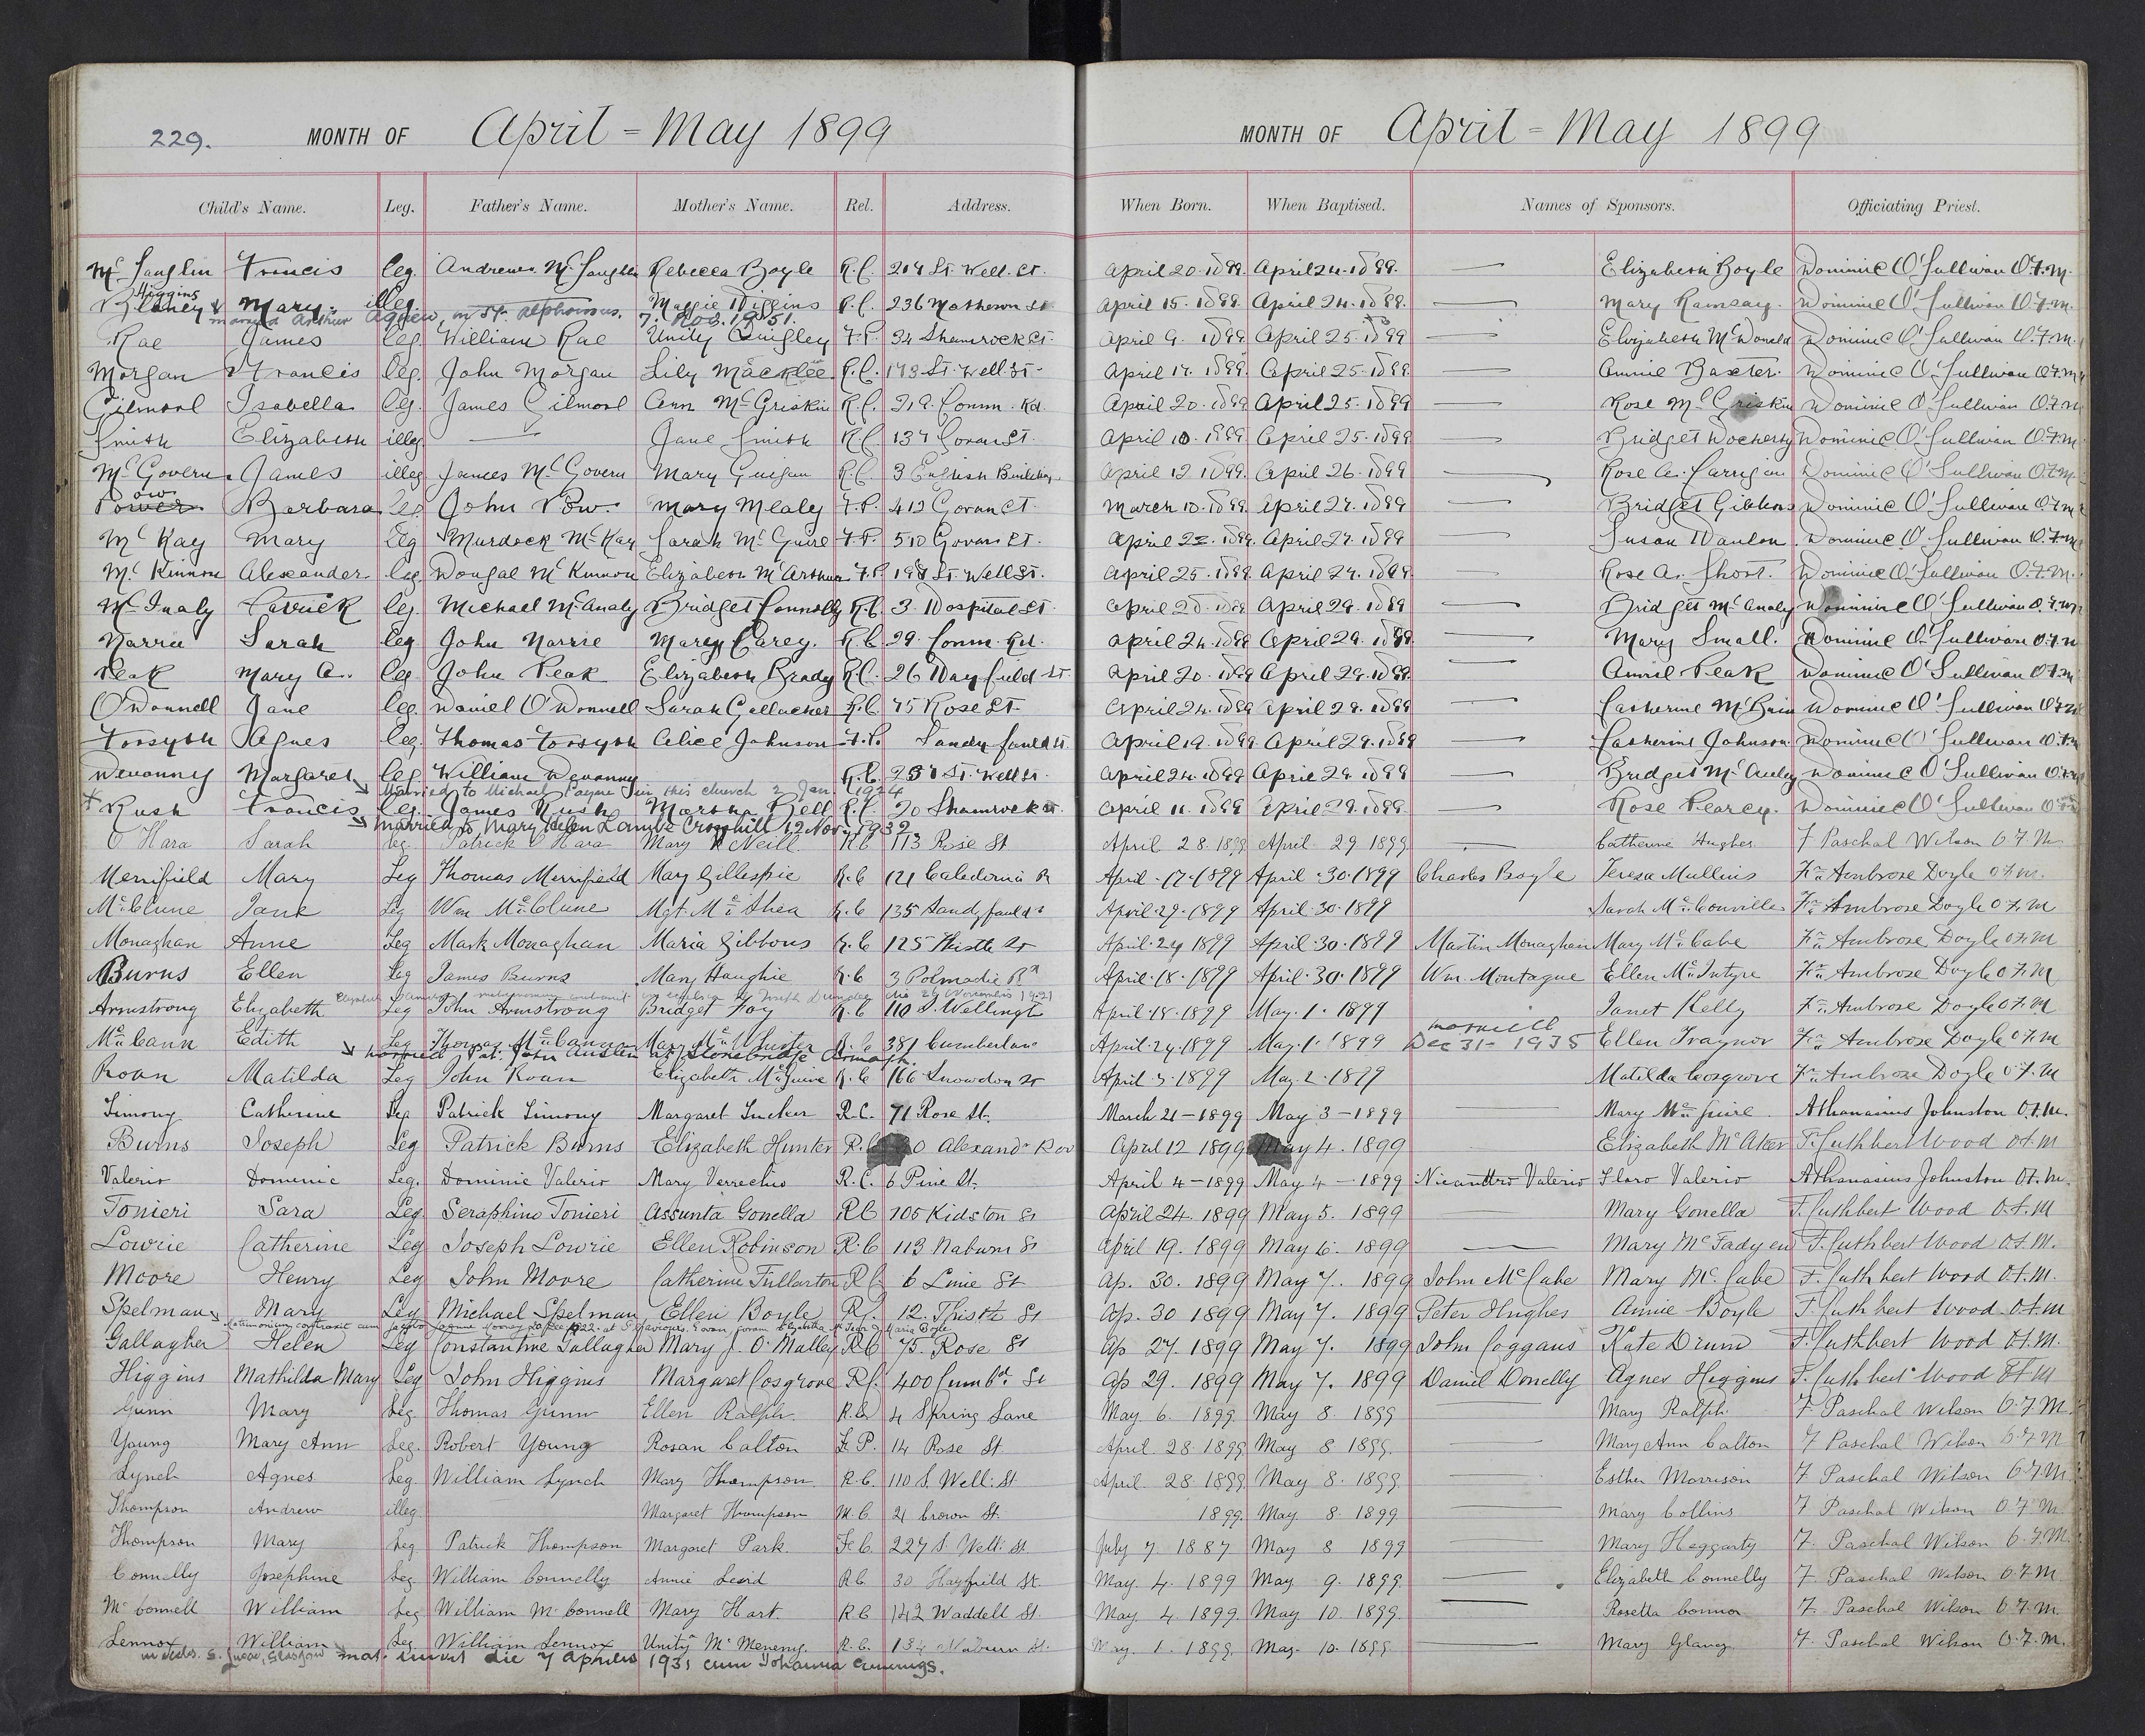 229. MONTH OF April = May 1899
MONTH OF April = May 1899
Child's Name. Leg. Father's Name. Mother's Name. Rel. Address. When Born. When Baptised. Names of Sponsors. Officiating Priest.
Mc Lauglin Francis leg. Andrew Mc Laughlin Rebecca Boyle R.C. 214 St. Well. St. April 20. 1899. April 24. 1899. — Elizabeth Boyle Dominic O'Sullivan O.F.M.
Higgins
Blaney Mary. illeg. Maggie Higgins R.C. 236 Matheson St April 15. 1899. April 24. 1899. — Mary Ramsay. Dominic O'Sullivan O.F.M.
married Arthur Agnew, in St. Alphonsus. 7. Nov. 1951.
Rae James leg. William Rae Unity Quigley F.P. 34 Shamrock St. April 9. 1899 April 25. 1899 — Elizabeth McDonald Dominic O'Sullivan O.F.M.
Morgan Francis leg. John Morgan Lily R.C. 173 St. Well St. April 17. 1899. April 25. 1899 — Annie Baxter. Dominic O'Sullivan O.F.M.
Gilmore Isabella leg. James Gilmore Ann McGriskin R.C. 219. Comm. Rd. April 20. 1899 April 25. 1899 — Rose McGriskin Dominic O'Sullivan O.F.M.
Smith Elizabeth illeg — Jane Smith R.C. 137 Govan St. April 10. 1899. April 25. 1899 — Bridget Docherty Dominic O'Sullivan O.F.M.
McGovern James illeg James McGovern Mary Guigan R.C. 3 English Buildings. April 12. 1899. April 26. 1899 — Rose A. Carrigan Dominic O'Sullivan O.F.M.
ow
Power Barbara leg John Pow. Mary Mealey F.P. 412 Govan St. March 10. 1899. April 27. 1899 — Bridget Gibbons Dominic O'Sullivan O.F.M.
McKay Mary leg Murdock McKay Sarah McGuire F.P. 510 Govan St. April 22. 1899. April 27. 1899 — Susan Hanlon. Dominic O'Sullivan O.F.M.
McKinnon Alexander leg. Dougal McKinnon Elizabeth McArthur F.P. 198 St. Well St. April 25. 1899. April 27. 1899 — Rose A. Short. Dominic O'Sullivan O.F.M.
McInaly Patrick leg. Michael McAnaly Bridget Connolly R.C. 3. Hospital St. April 20. 1899 April 29. 1899 — Bridget McAnaly Dominic O'Sullivan O.F.M.
Narrie Sarah leg John Narrie Mary Carey. R.C 29. Comm. Rd. April 24. 1899 April 29. 1899. — Mary Small. Dominic O'Sullivan O.F.M
Peak Mary A. leg. John Peak Elizabeth Brady R.C. 26 Hayfield St. April 20. 1899 April 29. 1899. — Annie Peak Dominic O'Sullivan O.F.M
O'Donnell Jane leg. Daniel O'Donnell Sarah Gallacher R.C. 75 Rose St. April 24. 1899 April 29. 1899 — Catherine McBrin Dominic O'Sullivan O.F.M
Forsyth Agnes leg. Thomas Forsyth Alice Johnson F.P. Sandyfauld St. April 19. 1899. April 29. 1899 — Catherine Johnson Dominic O'Sullivan O.F.M
Devanny Margaret leg. William Devanny R.C. St. Well St. April 24. 1899 April 29. 1899 — Bridget McAuley Dominic O'Sullivan O.F.M
Married to Michael Payne in this church 2 Jan. 1924
Rush Francis leg. James Rush Martha Bell R.C. 20 Shamrock St. April 11. 1899 April 29. 1899. — Rose Pearcy. Dominic O'Sullivan O.F.M
Married to Mary Helen Crosshill 12 Nov. 1932
O'Hara Sarah leg. Patrick O'Hara Mary McNeill R.C 113 Rose St April 28. 1899 April 29 1899 — Catherine Hughes F Paschal Wilson O.F.M
Merrifield Mary Leg Thomas Merrifield Mary Gillespie R.C 121 Caledonia R April. 17. 1899 April. 30. 1899 Charles Boyle Teresa Mullins Fr. Ambrose Doyle O.F.M.
McClune Jane Leg Wm McClune Mgt. McShea R.C 135 Sandyfauld St April. 29. 1899 April. 30. 1899 Sarah McConville Fr. Ambrose Doyle O.F.M
Monaghan Anne Leg Mark Monaghan Maria Gibbons R.C 125 Thistle St April. 24 1899 April. 30. 1899 Martin Monaghan Mary McCabe Fr. Ambrose Doyle O.F.M
Burns Ellen Leg James Burns Mary Haughie R.C 3 Polmadie Rd April. 18. 1899 April. 30. 1899 Wm. Montague Ellen McIntyre Fr. Ambrose Doyle O.F.M
Armstrong Elizabeth Leg John Armstrong Bridget Foy R.C 110 S. Wellingt April. 18. 1899 May. 1. 1899 Janet Kelly Fr. Ambrose Doyle O.F.M
McCann Edith Leg Thomas McCann Mary McWhister R.C 381 Cumberland April. 24. 1899 May. 1. 1899 married Dec 31- 1935 Ellen Traynor Fr. Ambrose Doyle O.F.M
married Pat. John Austin at Stonebridge Armagh.
Roan Matilda Leg John Roan Elizabeth McGuire R.C 166 Snowdon St April. 3. 1899 May. 2. 1899 Matilda Cosgrove Fr. Ambrose Doyle O.F.M
Timony Catherine Leg Patrick Timony Margaret Tucker R.C. 71 Rose St. March 21 - 1899 May 3 - 1899 — Mary McGuire. Athanasius Johnston O.F.M.
Burns Joseph Leg Patrick Burns Elizabeth Hunter R.C 0 Alexandr Row April 12 1899 May 4. 1899 Elizabeth McAteer F. Cuthbert Wood O.F.M
Valerio Domenic Leg. Dominic Valerio Mary Verrechio R.C. 6 Pine St. April 4 - 1899 May 4 - 1899 Nicanttro Valerio Floro Valerio Athanasius Johnston O.F.M.
Tonieri Sara Leg. Seraphino Tonieri Assunta Gonella RC 105 Kidston St April 24. 1899 May 5. 1899 — Mary Gonella F. Cuthbert Wood O.F.M
Lowrie Catherine Leg Joseph Lowrie Ellen Robinson R.C 113 Naburn St April 19. 1899 May 6. 1899 — Mary McFadyen F. Cuthbert Wood O.F.M.
Moore Henry Leg John Moore Catherine Fullarton R.C 6 Lime St Ap. 30. 1899 May 7. 1899 John McCabe Mary McCabe F. Cuthbert Wood O.F.M.
Spelman Mary Leg Michael Spelman Ellen Boyle R. 12. Thistle St Ap. 30 1899 May 7. 1899 Peter Hughes Annie Boyle F. Cuthbert Wood O.F.M
Matrimonium contraxit cum
Gallagher Helen Leg Constantine Gallagher Mary J. O'Malley RC 75. Rose St Ap 27. 1899 May 7. 1899 John Coggans Kate Drum F. Cuthbert Wood O.F.M.
Higgins Mathilda Mary Leg John Higgins Margaret Cosgrove R.C. 400 Cumbd. St Ap 29. 1899 May 7. 1899 Daniel Donelly Agnes Higgins F. Cuthbert Wood O.F.M
Gunn Mary Leg Thomas Gunn Ellen Ralph. R.C 4 Spring Lane May. 6. 1899. May 8. 1899 — Mary Ralph. F. Paschal Wilson O.F.M.
Young Mary Ann Leg. Robert Young Rosan Calton F.P. 14 Rose St. April. 28 1899 May 8 1899. — Mary Ann Calton F Paschal Wilson O.F.M
Lynch Agnes Leg William Lynch Mary Thompson R.C. 110 S. Well. St April. 28. 1899. May 8. 1899. — Esther Morrison F. Paschal Wilson O.F.M.
Thompson Andrew illeg. Margaret Thompson M.C. 21 Crown St. 1899. May 8. 1899 — Mary Collins F Paschal Wilson O.F.M
Thompson Mary Leg Patrick Thompson Margaret Park. F.C. 227 S. Well. St July 7. 1887 May 8 1899 — Mary Heggarty F. Paschal Wilson O.F.M.
Connelly Josephine Leg William Connelly Annie R.C. 30 Hayfield St. May. 4. 1899 May 9. 1899. — Elizabeth Connelly F. Paschal Wilson O.F.M
McConnell William Leg William McConnell Mary Hart. R.C 142 Waddell St. May 4. 1899. May 10. 1899. — Rosetta Connor F. Paschal Wilson O.F.M.
Lennox William Leg William Lennox Unity McMenemy. R.C. 134 Naburn St. May. 1. 1899. May. 10. 1899. — Mary Glancy F. Paschal Wilson O.F.M.
Glasgow mat. iniit die 7 Aprilis 1931 cum Johanna Cummings.